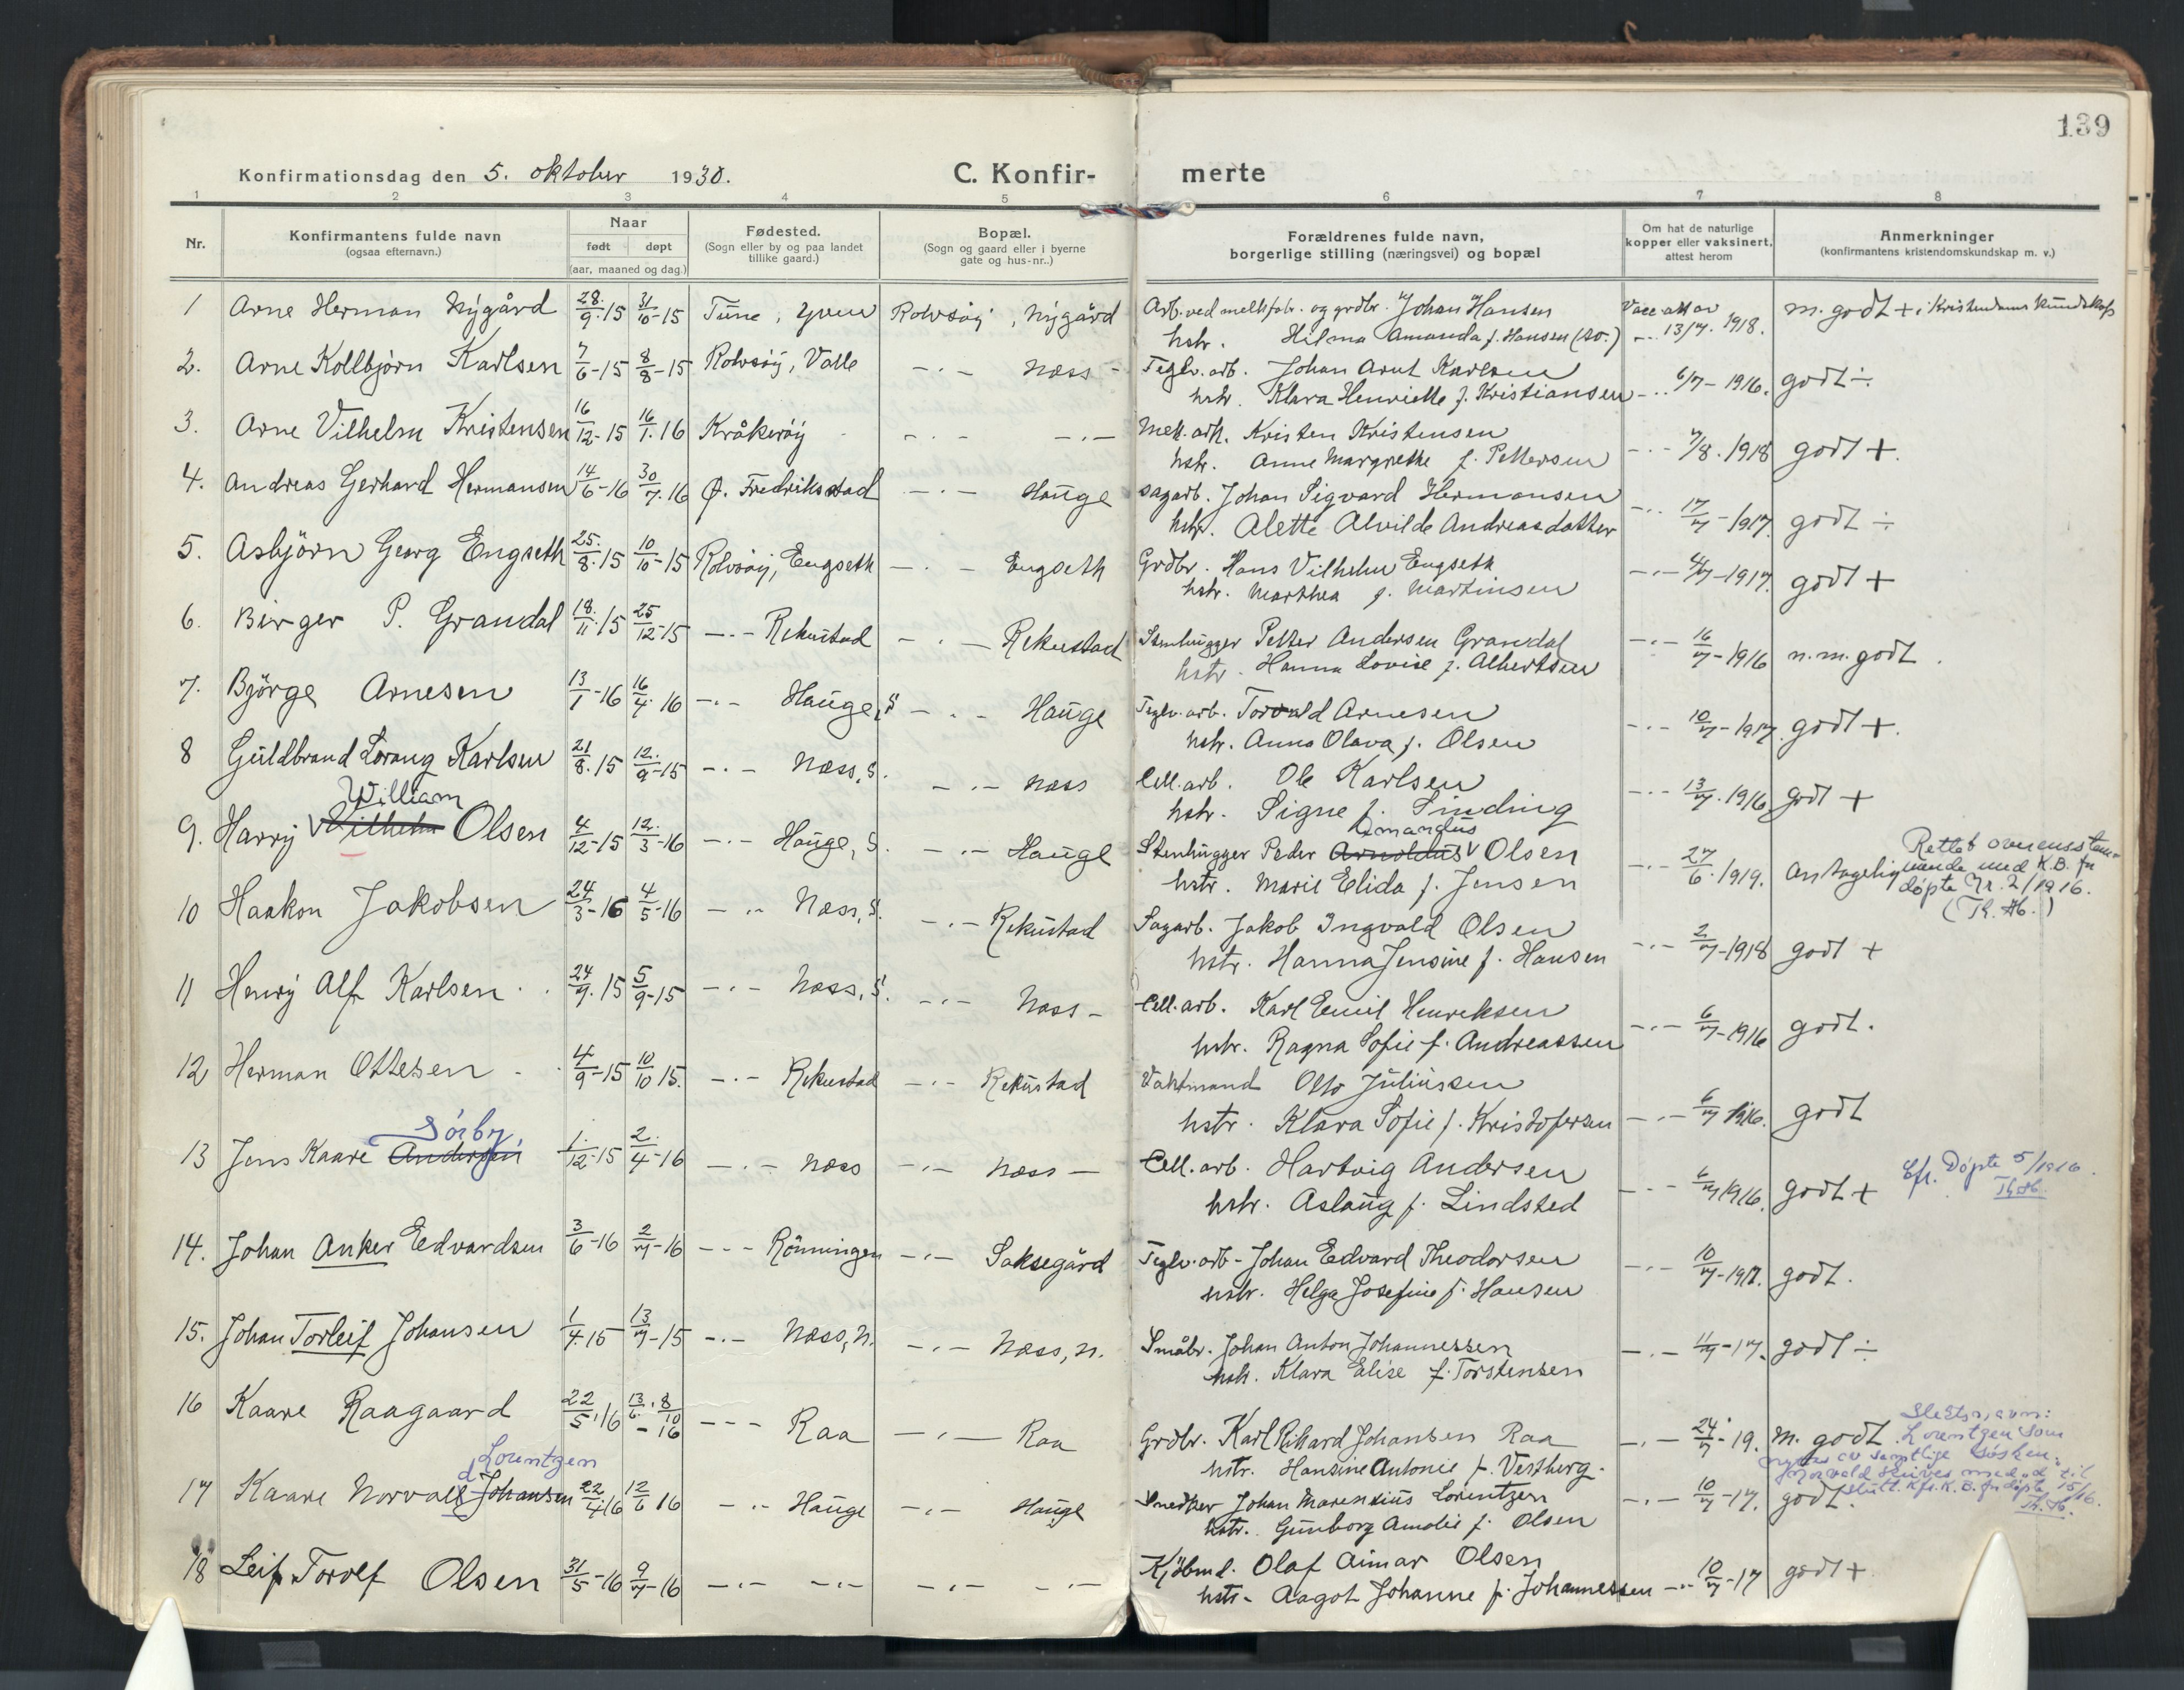 139
Konfirmationsdag den 5. oktober 1930. C. Konfirmerte
1 2 3 4 5 6 7 8
Nr.
Konfirmantens fulde navn
(ogsaa efternavn.)
Naar
født døpt
(aar, maaned og dag.)
Fødested.
(Sogn eller by og paa landet
tillike gaard.)
Bopæl.
(Sogn og gaard eller i byerne
gate og hus-nr..)
Forældrenes fulde navn,
borgerlige stilling (næringsvei) og bopæl
Om hat de naturlige
kopper eller vaksinert,
attest herom
Anmerkninger
(konfirmantens kristendomskundskap m. v.)
1 Arne Herman Nygård 28/9-15 31/10-15 Tune, Yven Rolvsøy, Nygård Arb. ved mellfabr. og grdbr. Johan Hansen Vacc. att av m. godt + i Kristendoms kundskap
hstr. Hilma Amanda f. Hansen -.- 13/7. 1918.
2. Arne Kollbjørn Karlsen 7/6-15 8/8-15 Rolvsøy, Valle -.- Næss - Teglv. arb. Johan Arnt Karlsen
hstr. Klara Henriette f. Kristiansen -.- 6/7-1916. godt ÷
3. Arne Vilhelm Kristensen 16/12-15 16/1.16 Kråkerøy -.- -.- Mek. arb. Kristen Kristensen
hstr. Anne Margrethe f. Pettersen -.- 7/8.1918 godt +.
4. Andreas Gerhard Hermansen 14/6-16 30/7.16 Ø. Fredrikstad -.- Hauge Sagarb. Johan Sigvard Hermansen
hstr. Alette Alvilde Andreasdatter -.- 17/7-1917. godt ÷
5. Asbjørn Georg Engseth 25./8.15 10/10-15 Rolvsøy, Engseth -.- Engseth Grdbr. Hans Vilhelm Engseth
hstr. Marthea f. Martinsen -.- 1917. godt +
6. Birger P. Grandal 18./11.15 25/12-15 -.- Rekustad -.- Rekustad Stenhugger Petter Andersen Grandal
hstr. Hanna Lovise f. Albertsen -.- 16/7-1916 n.m. godt.
7. Bjørge Arnesen 13/1-16 16/4.16 -.- Hauge, S -.- Hauge Teglv. arb. Torvald Arnesen
hstr. Anna Olava f. Olsen -.- 10/7-1917. godt +.
8 Guldbrand Lorang Karlsen 21/8.15 12./9-15 -.- Næss, S. -.- Næss Cell. arb. Ole Karlsen
hstr. Signe f. Sinding -.- 13/7.1916 godt +
William
Amandus
9. Harry Vilhelm Olsen 4/12-15 12./3-16 -.- Hauge, S. -.- Hauge Stenhugger Peder Arnoldus Olsen
hstr. Marie Elida f. Jensen -.- 27/6.1919. Antagelig
Rettet overensstem-
mende med K.B. for
døpte Nr. 2/1916.
(Th. Ab.)
10 Haakon Jakobsen 24/3-16 4/5-16 -.- Næss, S. -.- Rekustad Sagarb. Jakob Ingvald Olsen
hstr. Hanna Jensine f. Hansen -.- 2/7-1918 godt +
11 Henry Alf Karlsen 24/7.15 5/9-15 -.- Næss, S. -.- Næss - Cell. arb. Karl Emil Henriksen
hstr. Ragna Sofie f. Andreassen -.- 6/7-1916 godt.
12 Herman Ottesen 4/9-15 10/10 15. -.- Rekustad -.- Rekustad Vaktmand Otto Juliussen
hstr. Klara Sofie f. Kristofersen -.- 6/7 1916. godt
Sörby,
13 Jens Kaare Andersen 1./12-15 2./4-16 -.- Næss -.- Næss - Cell. arb. Hartvig Andersen
hstr. Aslaug f. Lindsted -.- 6/7 1916. godt + Cfr. Døpte 5/1916.
Th. Ab.
14. Johan Anker Edvardsen 3/6-16 2/7-16 -.- Rönningen -.- Saksegård Teglv. arb - Johan Edvard Theodorsen
hstr. Helga Josefine f. Hansen -.- 10/7-1917. godt.
15. Johan Torleif Johansen 1/4.15 13/7-15 -.- Næss, n. -.- Næss, n. Småbr. Johan Anton Johannessen
hstr. Klara Elise f. Torstensen -.- 11/7-17. godt ÷
16 Kaare Raagaard 22/5.16 13/6. 8/10-16 -.- Raa -.- Raa Grdbr. Karl Rikard Johansen Raa
hstr. Hansine Antonie f. Vestberg. -.- 24/7-19. m. godt.
Lorentzen
d
17 Kaare Norvall Johansen 22/4.16 12/6 16 -.- Hauge -.- Hauge Snedker Johan Marensius Lorentzen
hstr. Gunborg Amalie f. Olsen -.- 10/7-17. godt.
Slektsnavn:
Lorentzen som
nyttes av samtlige søsken.
Norvald skrives med d til
slutt. Kfr. K.B. for døpte 15/16.
Th. Ab.
18 Leif Torolf Olsen 31/5-16 9/7-16 -.- -.- -.- -.- Kjøbmd. Olaf Aimar Olsen
hstr. Aagot Johanne f. Johannessen -.- 10/7-17 godt +